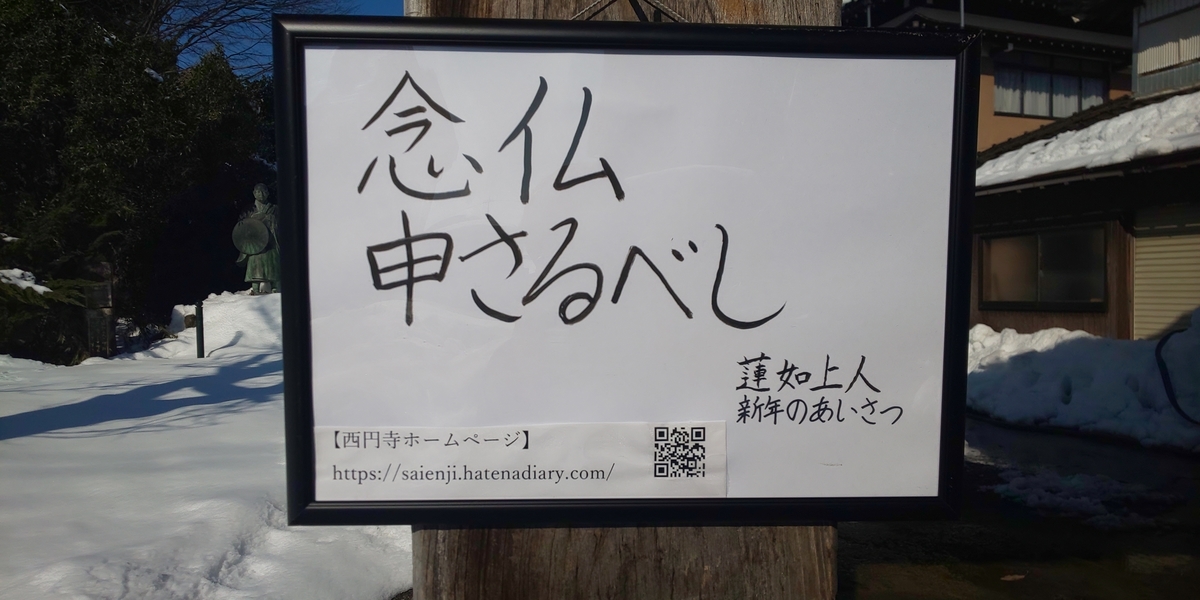 念仏
申さるべし
蓮如上人
新年のあいさつ
【西円寺ホームページ】
https://saienji.hatenadiary.com/